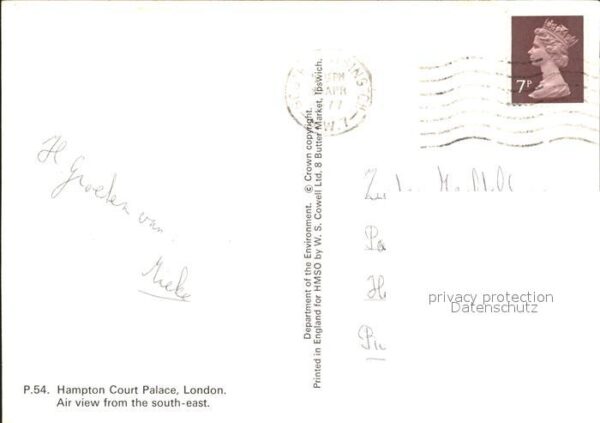 7P
APR
77
W.1
H Groeten van
Mieke
P.54. Hampton Court Palace, London.
Air view from the south-east.
Department of the Environment. © Crown copyright.
Printed in England for HMSO by W. S. Cowell Ltd, 8 Butter Market, Ipswich.
Pa
H
privacy protection
Datenschutz